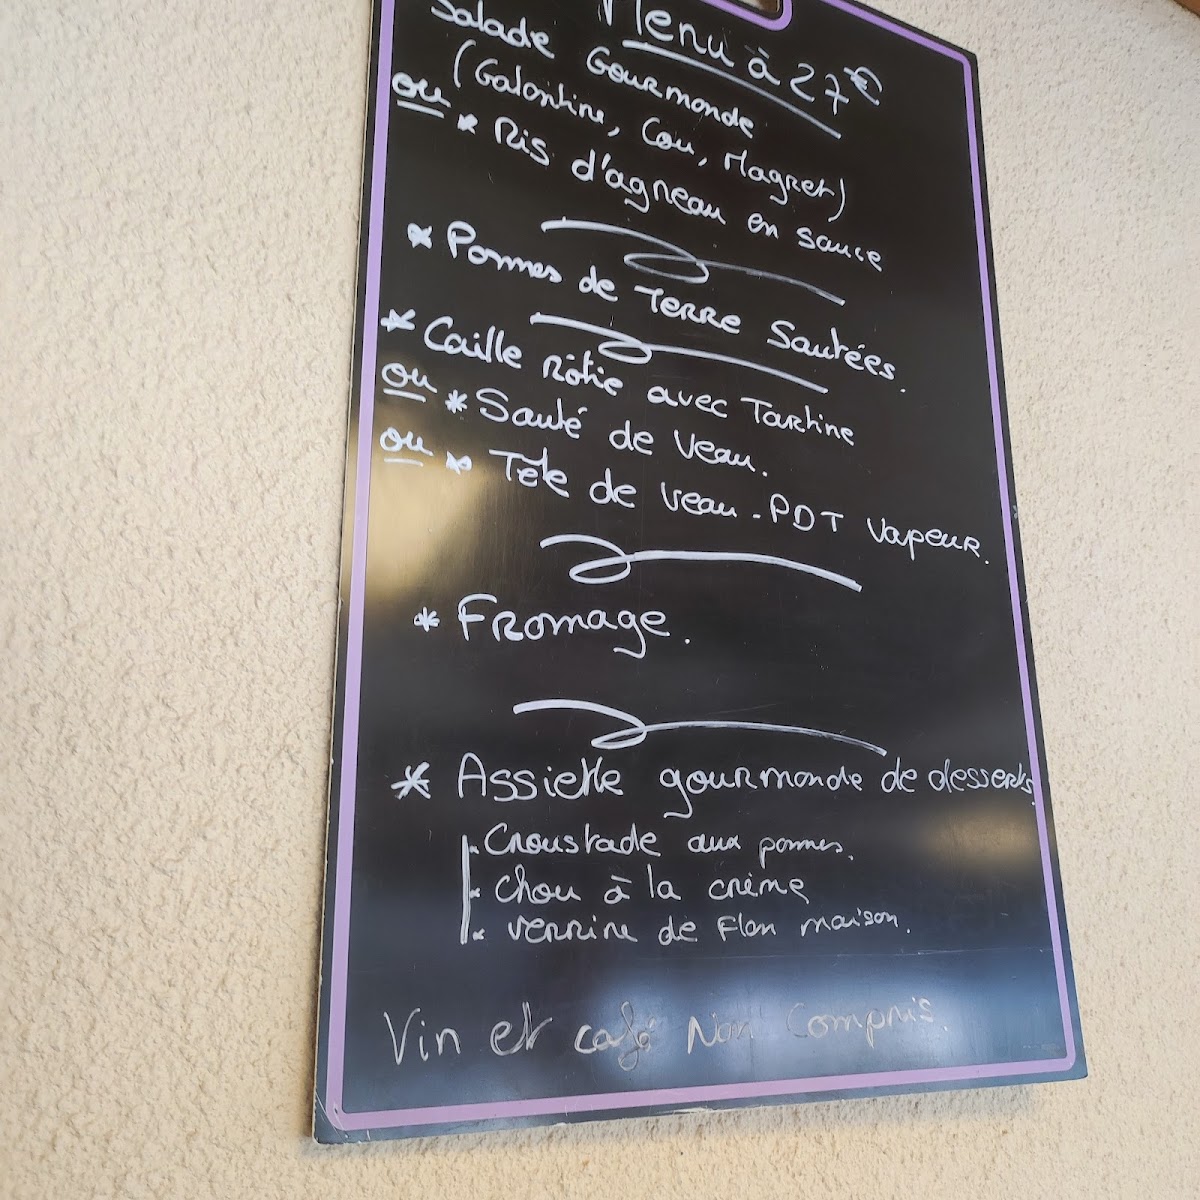 Menu à 27€
Salade Gourmonde
(Galantine, Cou, Magret)
ou * Ris d'agneau en sauce
* Pommes de Terre Sautées.
* Caille Rôtie avec Tartine
ou * Sauté de Veau.
ou * Tête de veau - PDT vapeur.
* Fromage.
* Assiette gourmonde de desserts.
- Croustade aux pommes.
- Chou à la crème
- verrine de Flan maison.
Vin et café Non Compris.